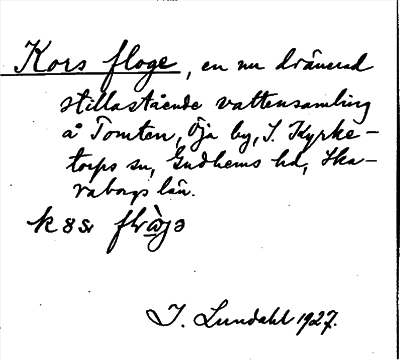 Kors floge, en nu dränerad
stillastående vattensamling
å Tomten, Öja by, S. Kyrke-
torps sn, Gudhems hd, Ska-
raborgs län.
I. Lundahl 1927.